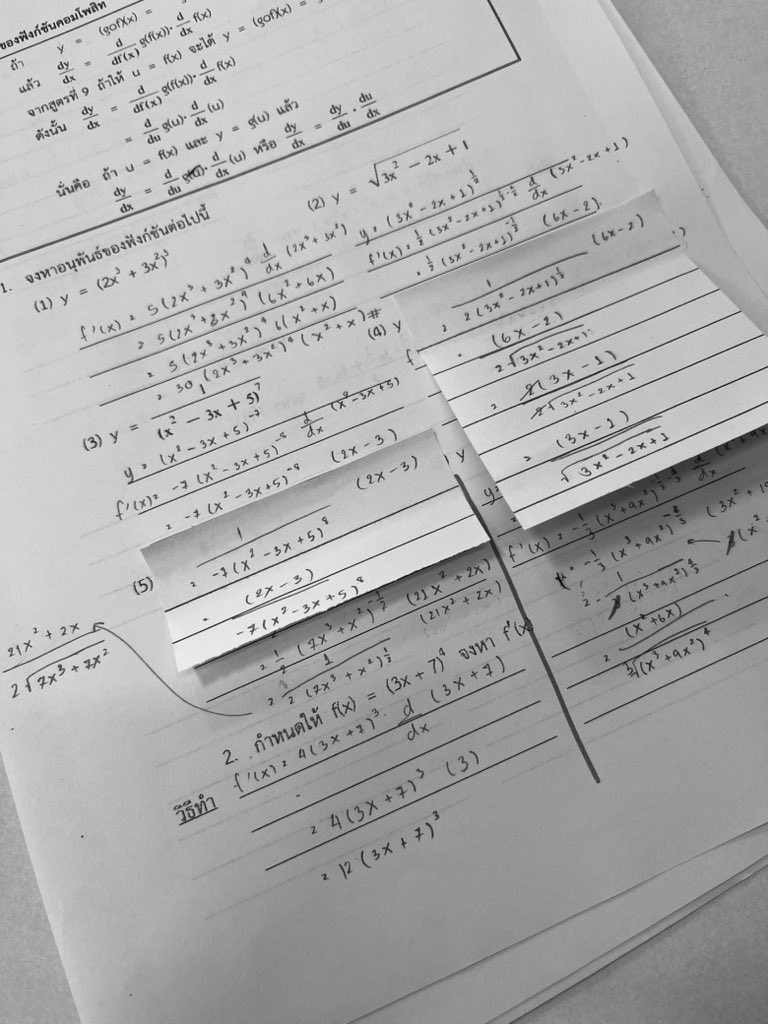 ของฟังก์ชันคอมโพสิท
ถ้า y = (gof)(x) =
แล้ว dy/dx = d/df(x) g(f(x))· d/dx f(x)
จากสูตรที่ 9 ถ้าให้ u = f(x) จะได้ y = (gof)(x) =
ดังนั้น dy/dx = d/df(x) g(f(x))· d/dx f(x)
= d/du g(u)· d/dx (u)
นั่นคือ ถ้า u = f(x) และ y = g(u) แล้ว
dy/dx = d/du g(u)· d/dx (u) หรือ dy/dx = dy/du · du/dx
1. จงหาอนุพันธ์ของฟังก์ชันต่อไปนี้
(1) y = (2x³ + 3x²)⁵
f'(x) = 5(2x³ + 3x²)⁴ d/dx (2x³ + 3x²)
= 5(2x³ + 3x²)⁴ (6x² + 6x)
= 5(2x³ + 3x²)⁴ 6(x² + x)
= 30 (2x³ + 3x²)⁴ (x² + x) #
(2) y = √(3x² − 2x + 1)
y = (3x² − 2x + 1)^(1/2)
f'(x) = 1/2 (3x² − 2x + 1)^(1/2 − 2/2) d/dx (3x² − 2x + 1)
= 1/2 (3x² − 2x + 1)^(−1/2) (6x − 2)
= 1/(2(3x² − 2x + 1)^(1/2)) (6x − 2)
= (6x − 2)/(2√(3x² − 2x + 1))
= 2(3x − 1)/(2√(3x² − 2x + 1))
= (3x − 1)/√(3x² − 2x + 1)
(3) y = 1/(x² − 3x + 5)⁷
y = (x² − 3x + 5)⁻⁷
f'(x) = −7 (x² − 3x + 5)⁻⁸ d/dx (x² − 3x + 5)
= −7 (x² − 3x + 5)⁻⁸ (2x − 3)
= 1/(−7(x² − 3x + 5)⁸) (2x − 3)
= (2x − 3)/(−7(x² − 3x + 5)⁸)
(4) y
f
y
y =
f'(x) = −1/3 (x³ + 9x²)^(−1/3 − 3/3) d/dx
= −1/3 (x³ + 9x²)^(−4/3) (3x² + 1
= 1/(3(x³ + 9x²)^(4/3))
= (x² + 6x)/∛(x³ + 9x²)⁴
(5)
= 1/2 (7x³ + x²)^(−1/2) (21x² + 2x)
= 1/(2(7x³ + x²)^(1/2)) (21x² + 2x)
21x² + 2x/2√(7x³ + 7x²)
2. กำหนดให้ f(x) = (3x + 7)⁴ จงหา f'(x
วิธีทำ f'(x) = 4(3x + 7)³· d/dx (3x + 7)
= 4(3x + 7)³ (3)
= 12(3x + 7)³